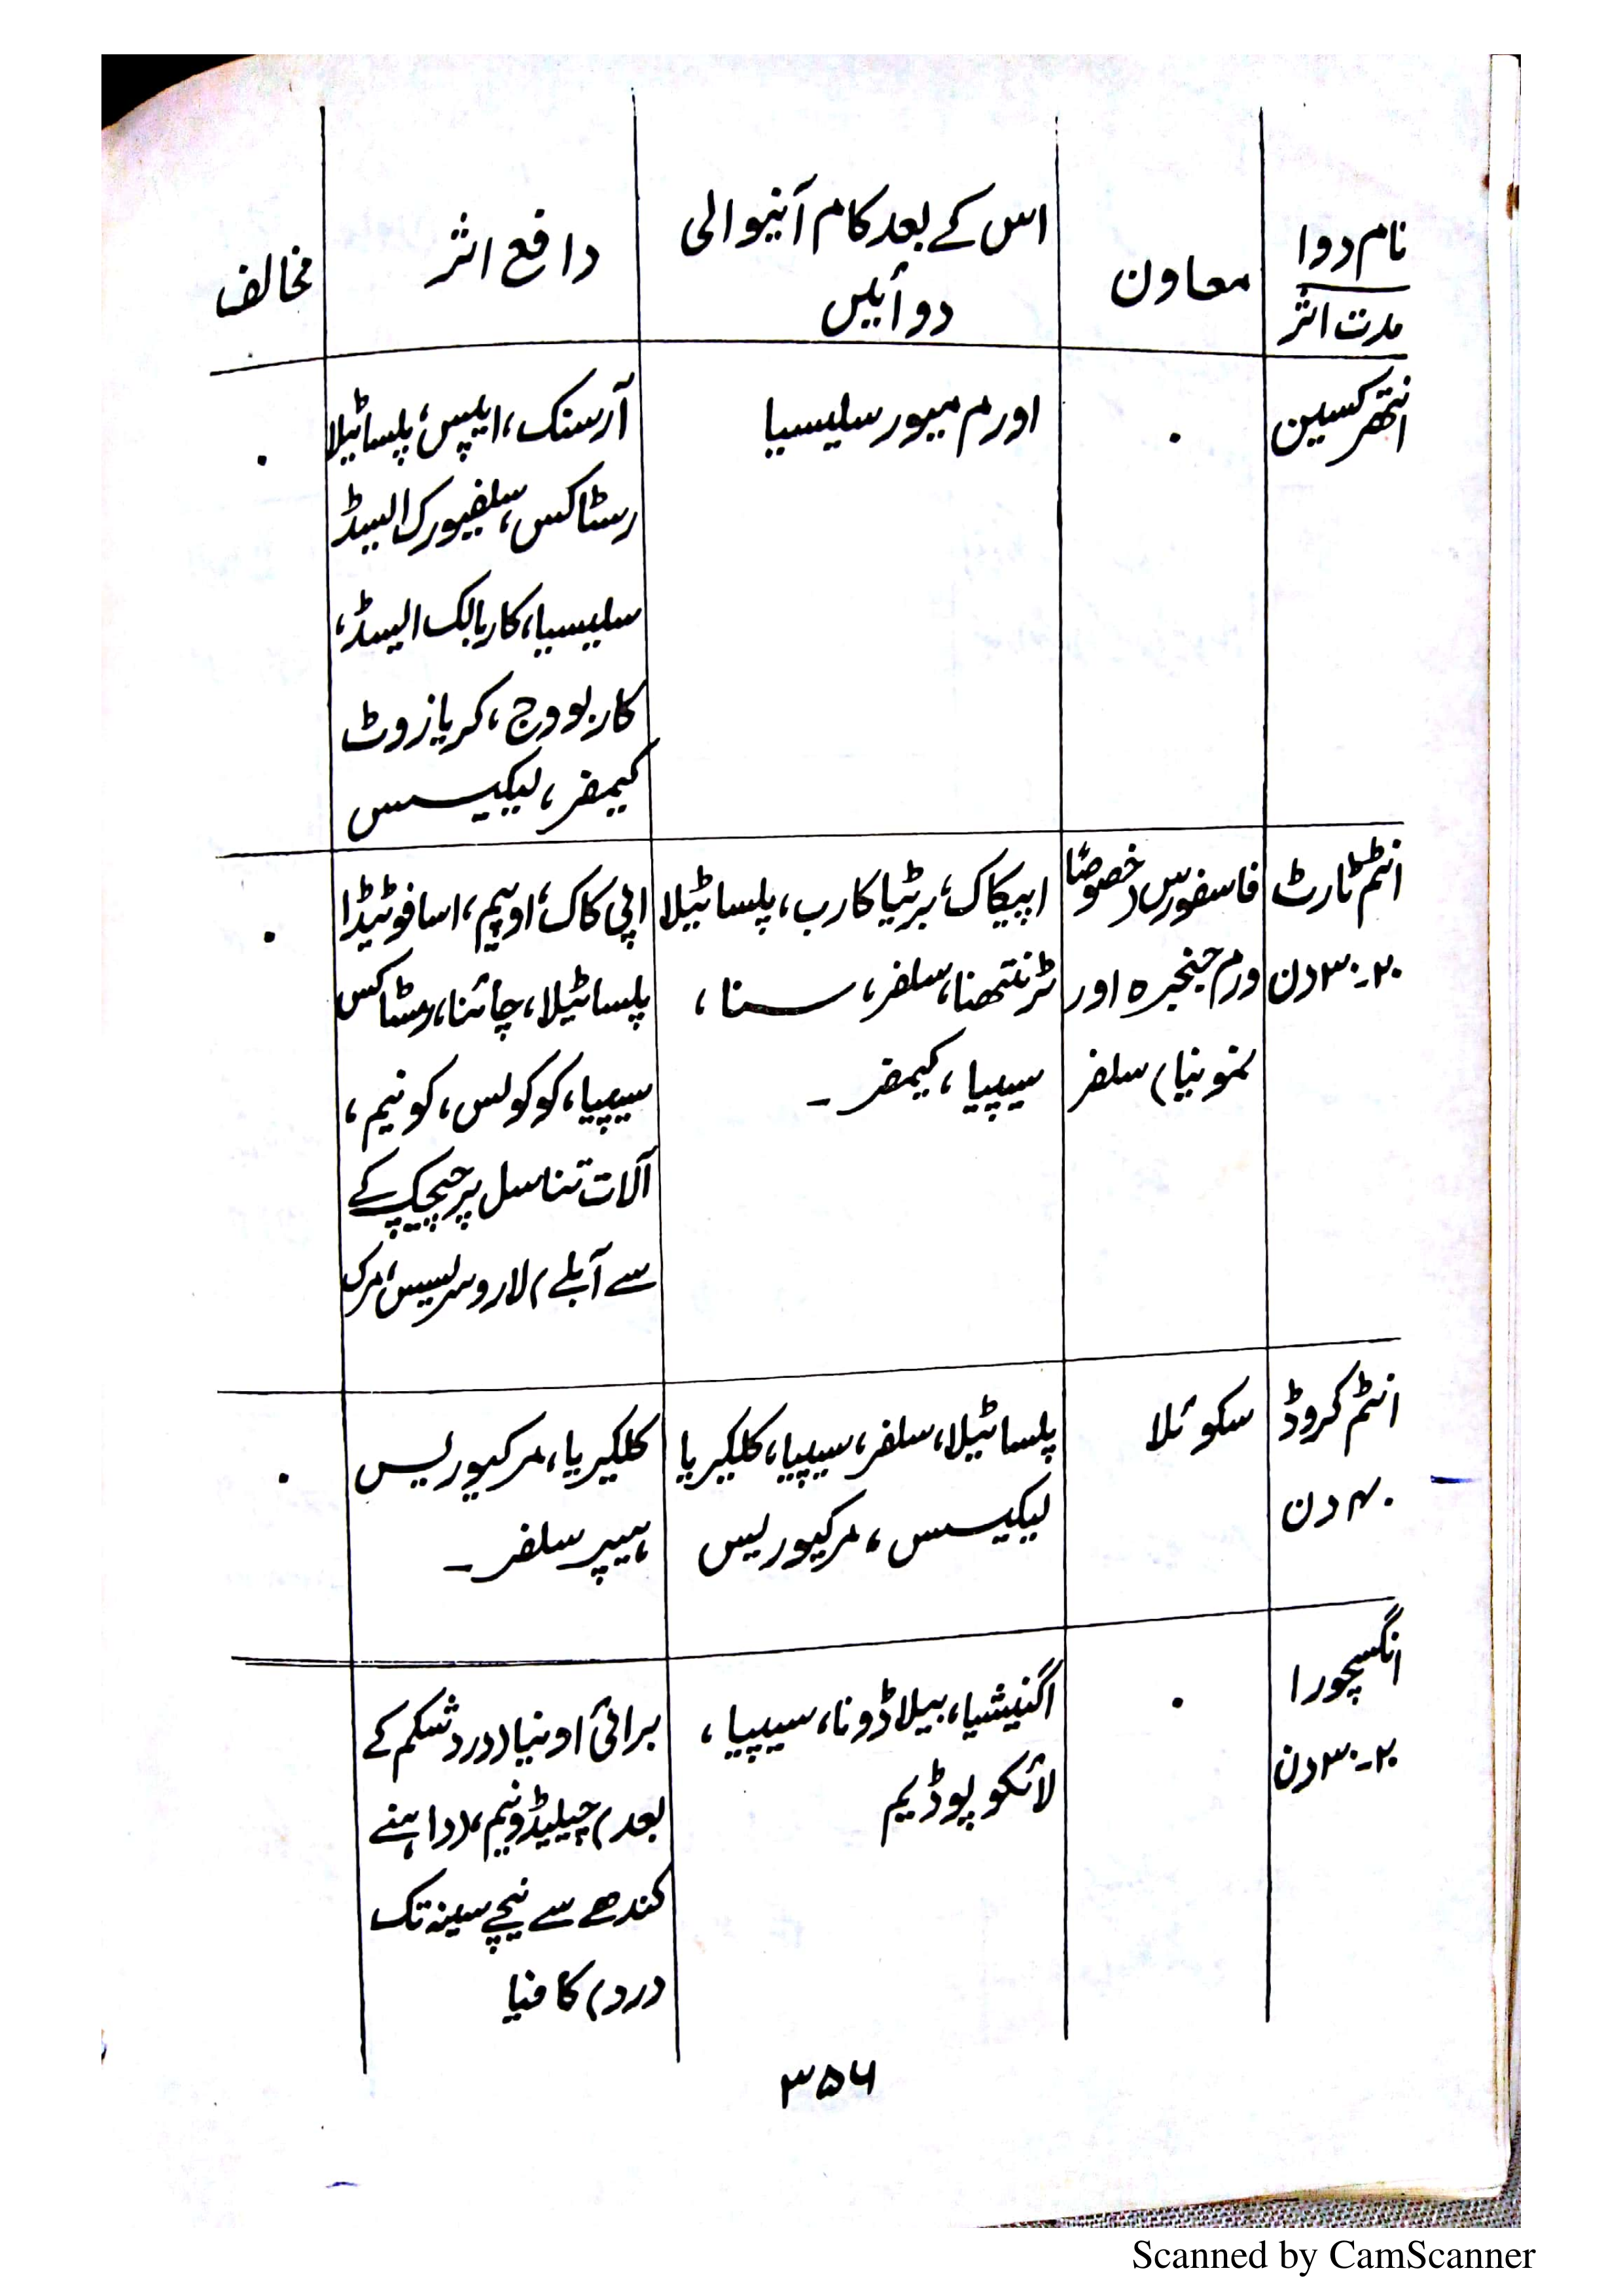 نام دوا
مدت اثر
معاون
اس کے بعد کام آنیوالی
دوائیں
دافع اثر
مخالف
انتھرکسین
۰
اورم میور سلیسیا
آرسنک، ایپس، پلساٹیلا
رسٹاکس، سلفیورک ایسڈ
سلیسیا، کاربالک ایسڈ،
کاربووج، کریازوٹ
کیمفر، لیکیسس
۰
انٹم ٹارٹ
۲۰-۳۰ دن
فاسفورس (خصوصاً
ورم حنجرہ اور
نمونیا) سلفر
اپیکاک، برئیا کارب، پلساٹیلا
ٹرنتھنا، سلفر، سنا،
سیپیا، کیمفر۔
اپی کاک، اوپیم، اسافوٹیڈا
پلساٹیلا، چائنا، رسٹاکس
سیپیا، کوکولس، کونیم،
آلات تناسل پر چیچک کے
سے آبلے) لاروسریسس، مرک
۰
انٹم کروڈ
۴۰ دن
سکوئلا
پلساٹیلا، سلفر، سیپیا، کلکیریا
لیکیسس، مرکیوریس
کلکیریا، مرکیوریس
ہیپر سلفر۔
۰
انگسچورا
۲۰-۳۰ دن
۰
اگنیشیا، بیلاڈونا، سیپیا،
لائکوپوڈیم
برائی اونیا (درد شکم کے
بعد) چیلیڈونیم، (داہنے
کندھے سے نیچے سینہ تک
درد) کافیا
۳۵۶
Scanned by CamScanner